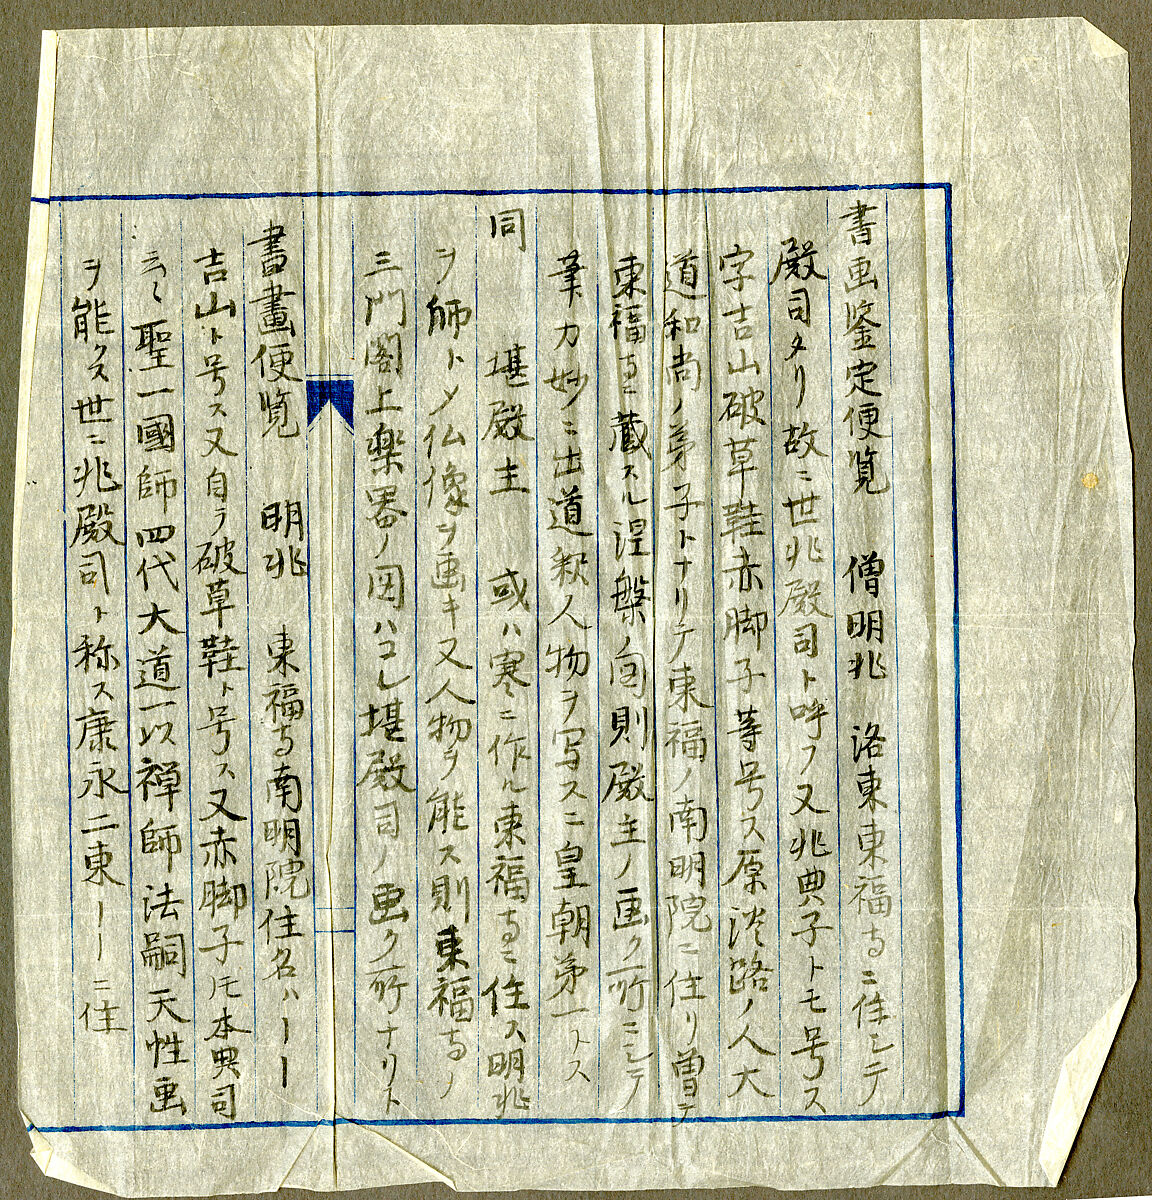 書画鑒定便覧　僧明兆　洛東東福寺ニ住シテ
殿司タリ故ニ世兆殿司ト呼フ又兆典子トモ号ス
字吉山破草鞋赤脚子等号ス原淡路ノ人大
道和尚ノ弟子トナリテ東福ノ南明院ニ住リ曽テ
東福寺ニ蔵スル涅槃ノ図則殿主ノ画ク所ニシテ
筆力妙ニ出道釈人物ヲ写スニ皇朝第一トス
同　堪殿主　或ハ寒ニ作ル東福寺ニ住ス明兆
ヲ師トメ仏像ヲ画キ又人物ヲ能ス則東福寺ノ
三門閣上楽器ノ図ハコレ堪殿司ノ画ク所ナリト
書畫便覧　明兆　東福寺南明院住名ハーー
吉山ト号ス又自ラ破草鞋ト号ス又赤脚子トモ本典司
云々聖一國師四代大道一以禅師法嗣天性画
ヲ能クス世ニ兆殿司ト称ス康永二東ーーニ住